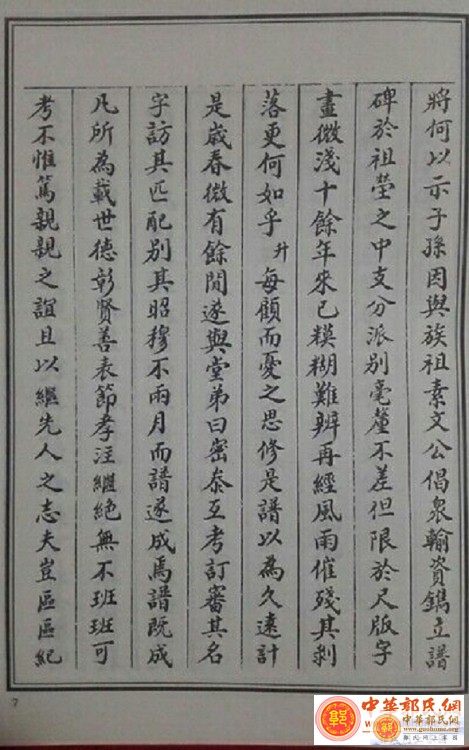 將何以示子孫因與族祖素文公倡衆輸資鐫立譜
碑於祖塋之中支分派別毫釐不差但限於尺版字
畫微淺十餘年來已糢糊難辨再經風雨催殘其剝
落更何如乎升每顧而憂之思修是譜以為久遠計
是歲春微有餘間遂與堂弟曰密泰互考訂審其名
字訪其匹配別其昭穆不兩月而譜遂成焉譜既成
凡所為載世德彰賢善表節孝注繼絕無不班班可
考不惟篤親親之誼且以繼先人之志夫豈區區紀
7
中華郭氏網
www.guohome.org
郭氏网上家园